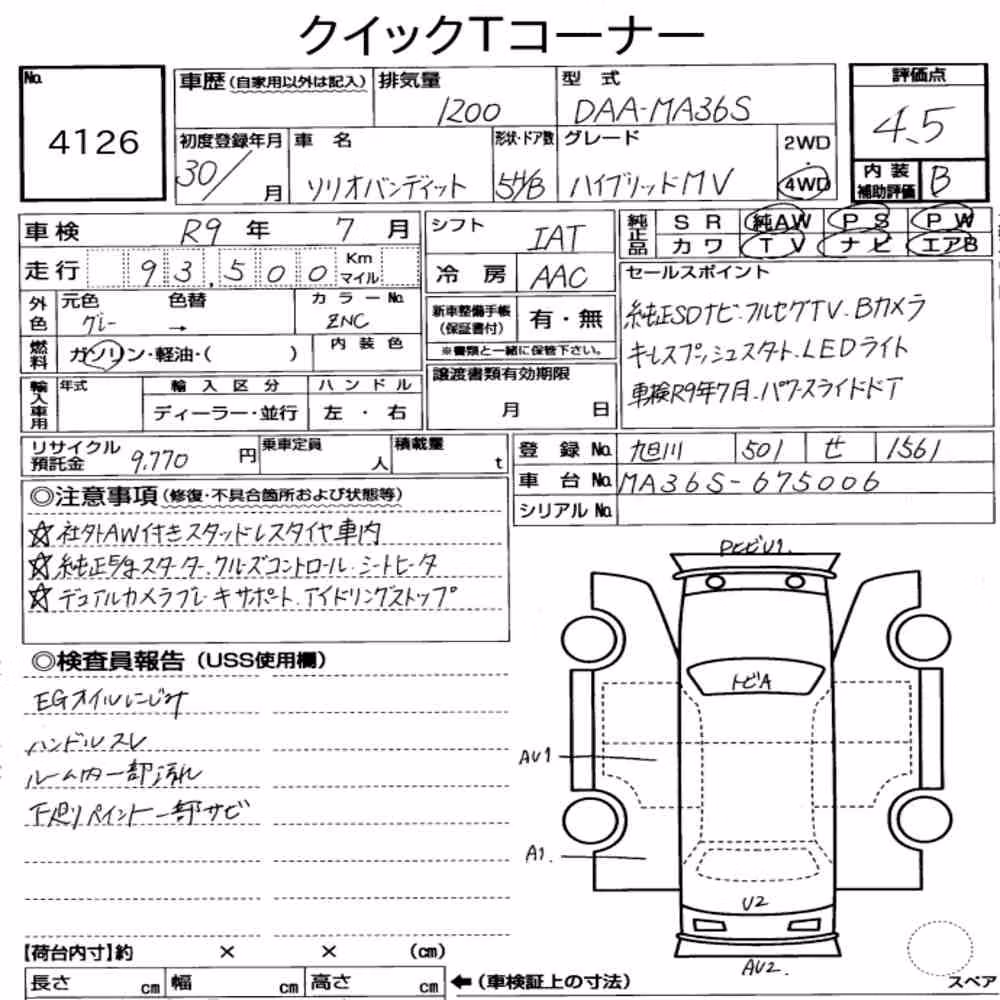 クイックTコーナー
No.
4126
車歴(自家用以外は記入)
排気量
1200
型 式
DAA-MA36S
評価点
4.5
初度登録年月
30/
月
車 名
ソリオバンディット
形状・ドア数
5H/B
グレード
ハイブリッドMV
2WD
4WD
内装
補助評価
B
車検 R9 年 7 月
シフト
IAT
純正品
SR 純AW PS PW
カワ TV ナビ エアB
走行 93,500 Km
マイル
冷房
AAC
セールスポイント
純正SDナビ・フルセグTV.Bカメラ
キーレスプッシュスタート.LEDライト
車検R9年7月.パワースライドドア
外色
元色
グレー
色替
→
カラーNo.
ZNC
新車整備手帳
(保証書付)
有・無
※書類と一緒に保管下さい。
燃料
ガソリン・軽油・( )
内装色
輸入車用
年式
輸入区分
ディーラー・並行
ハンドル
左・右
譲渡書類有効期限
月 日
リサイクル
預託金
9,770 円
乗車定員
人
積載量
t
登録No. 旭川 501 せ 1561
車台No. MA36S-675006
シリアルNo.
◎注意事項(修復・不具合箇所および状態等)
☆社外AW付きスタッドレスタイヤ車内
☆純正E/gスターター.クルーズコントロール.シートヒータ
☆デュアルカメラブレーキサポート.アイドリングストップ
◎検査員報告(USS使用欄)
EGオイルにじみ
ハンドルスレ
ルーム内一部汚れ
下廻りペイント一部サビ
PヒビU1.
トビA
AU1
A1.
U2
AU2.
【荷台内寸】約 × × (cm)
長さ cm 幅 cm 高さ cm
←(車検証上の寸法)
スペア